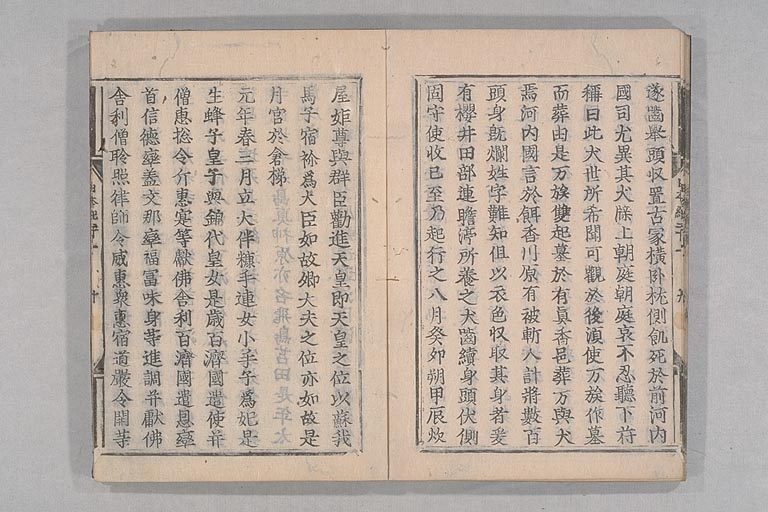 遂嚙擧頭収置古冢横臥枕側飢死於前河内
國司尤異其犬牒上朝庭朝庭哀不忍聽下苻
稱曰此犬世所希聞可觀於後湏使万族作墓
而葬由是万族雙起墓於有眞香邑葬万與犬
焉河内國言於餌香川原有被斬人計將數百
頭身既爛姓字難知但以衣色収取其身者爰
有櫻井田部連膽渟所養之犬嚙續身頭伏側
固守使收已至乃起行之八月癸卯朔甲辰炊
屋姫尊與群臣勸進天皇即天皇之位以蘇我
馬子宿祢爲大臣如故卿大夫之位亦如故是
月宮於倉梯
元年春三月立大伴糠手連女小手子爲妃是
生蜂子皇子與錦代皇女是歳百濟國遣使并
僧惠捴令斤惠寔等獻佛舎利百濟國遣恩率
首信德率盖文那率福冨味身等進調并獻佛
舎利僧聆照律師令威惠衆惠宿道嚴令開等